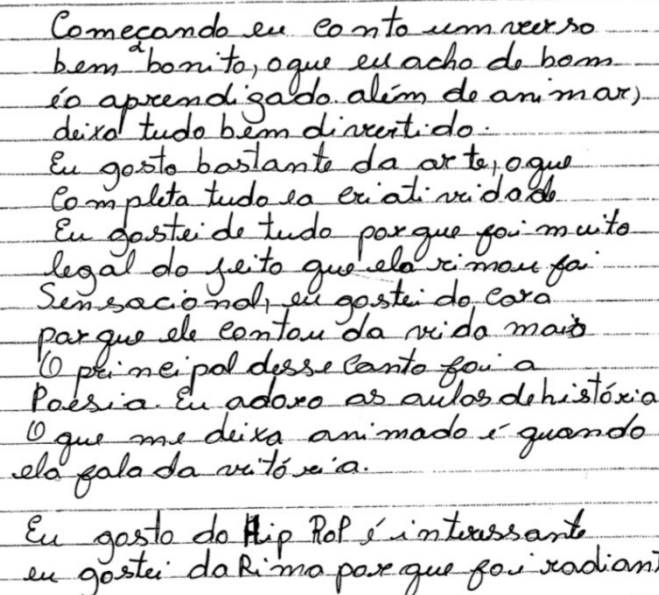 Começando eu conto um verso
bem bonito, o que eu acho de bom
é o aprendizado além de animar,
deixa tudo bem divertido.
Eu gosto bastante da arte, o que
Completa tudo é a criatividade
Eu gostei de tudo porque foi muito
legal do jeito que ela rimou foi
Sensacional, eu gostei do cara
porque ele contou da vida mais
O principal desse canto foi a
Poesia. Eu adoro as aulas de história
O que me deixa animado é quando
ela fala da vitória.
Eu gosto do Hip Rop é interessante
eu gostei da Rima porque foi radiant